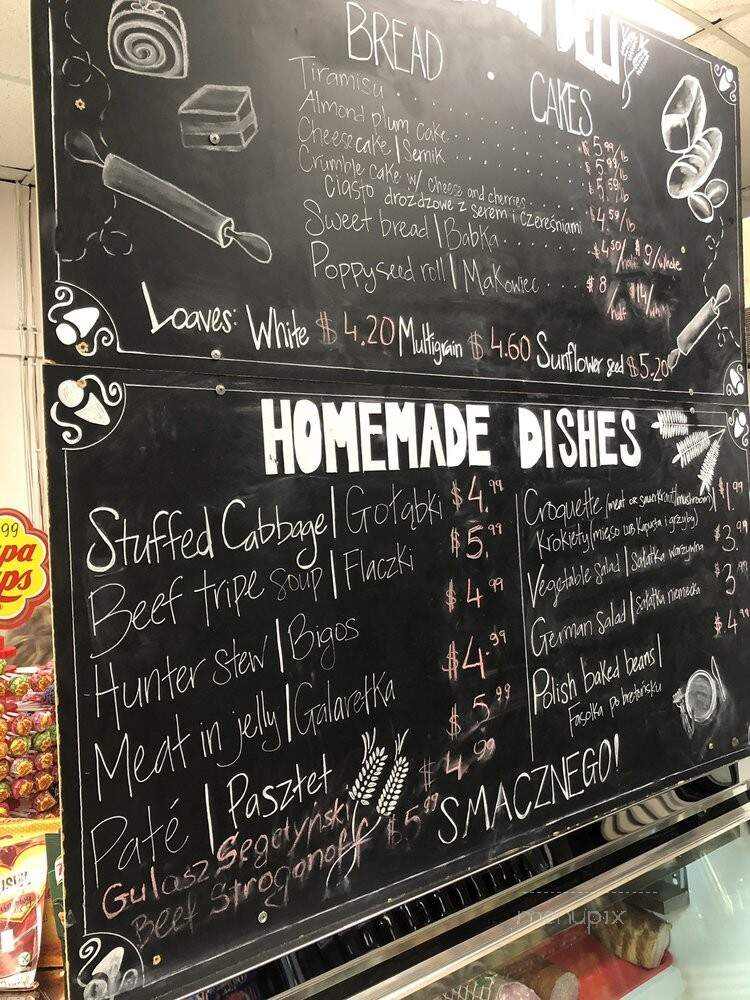 DELI
BREAD
CAKES
Tiramisu $5.99/lb
Almond plum cake $5.99/lb
Cheesecake | Sernik $5.59/lb
Crumble cake w/ cheese and cherries
Ciasto drożdżowe z serem i czereśniami $4.59/lb
Sweet bread | Babka $4.50/half $9/whole
Poppyseed roll | Makowiec $8/half $14/whole
Loaves: White $4.20 Multigrain $4.60 Sunflower seed $5.20
HOMEMADE DISHES
Stuffed Cabbage | Gołąbki $4.99
Beef tripe soup | Flaczki $5.99
Hunter stew | Bigos $4.99
Meat in jelly | Galaretka $4.99
Paté | Pasztet $5.99
$4.99
Gulasz Segedyński
Beef Strogonoff $5.99
Croquette (meat or sauerkraut/mushroom) $1.99
Krokiety (mięso lub kapusta i grzyby)
Vegetable salad | Sałatka warzywna $3.99
German Salad | Sałatka niemiecka $3.99
Polish baked beans | $4.99
Fasolka po bretońsku
SMACZNEGO!
.99
menupix